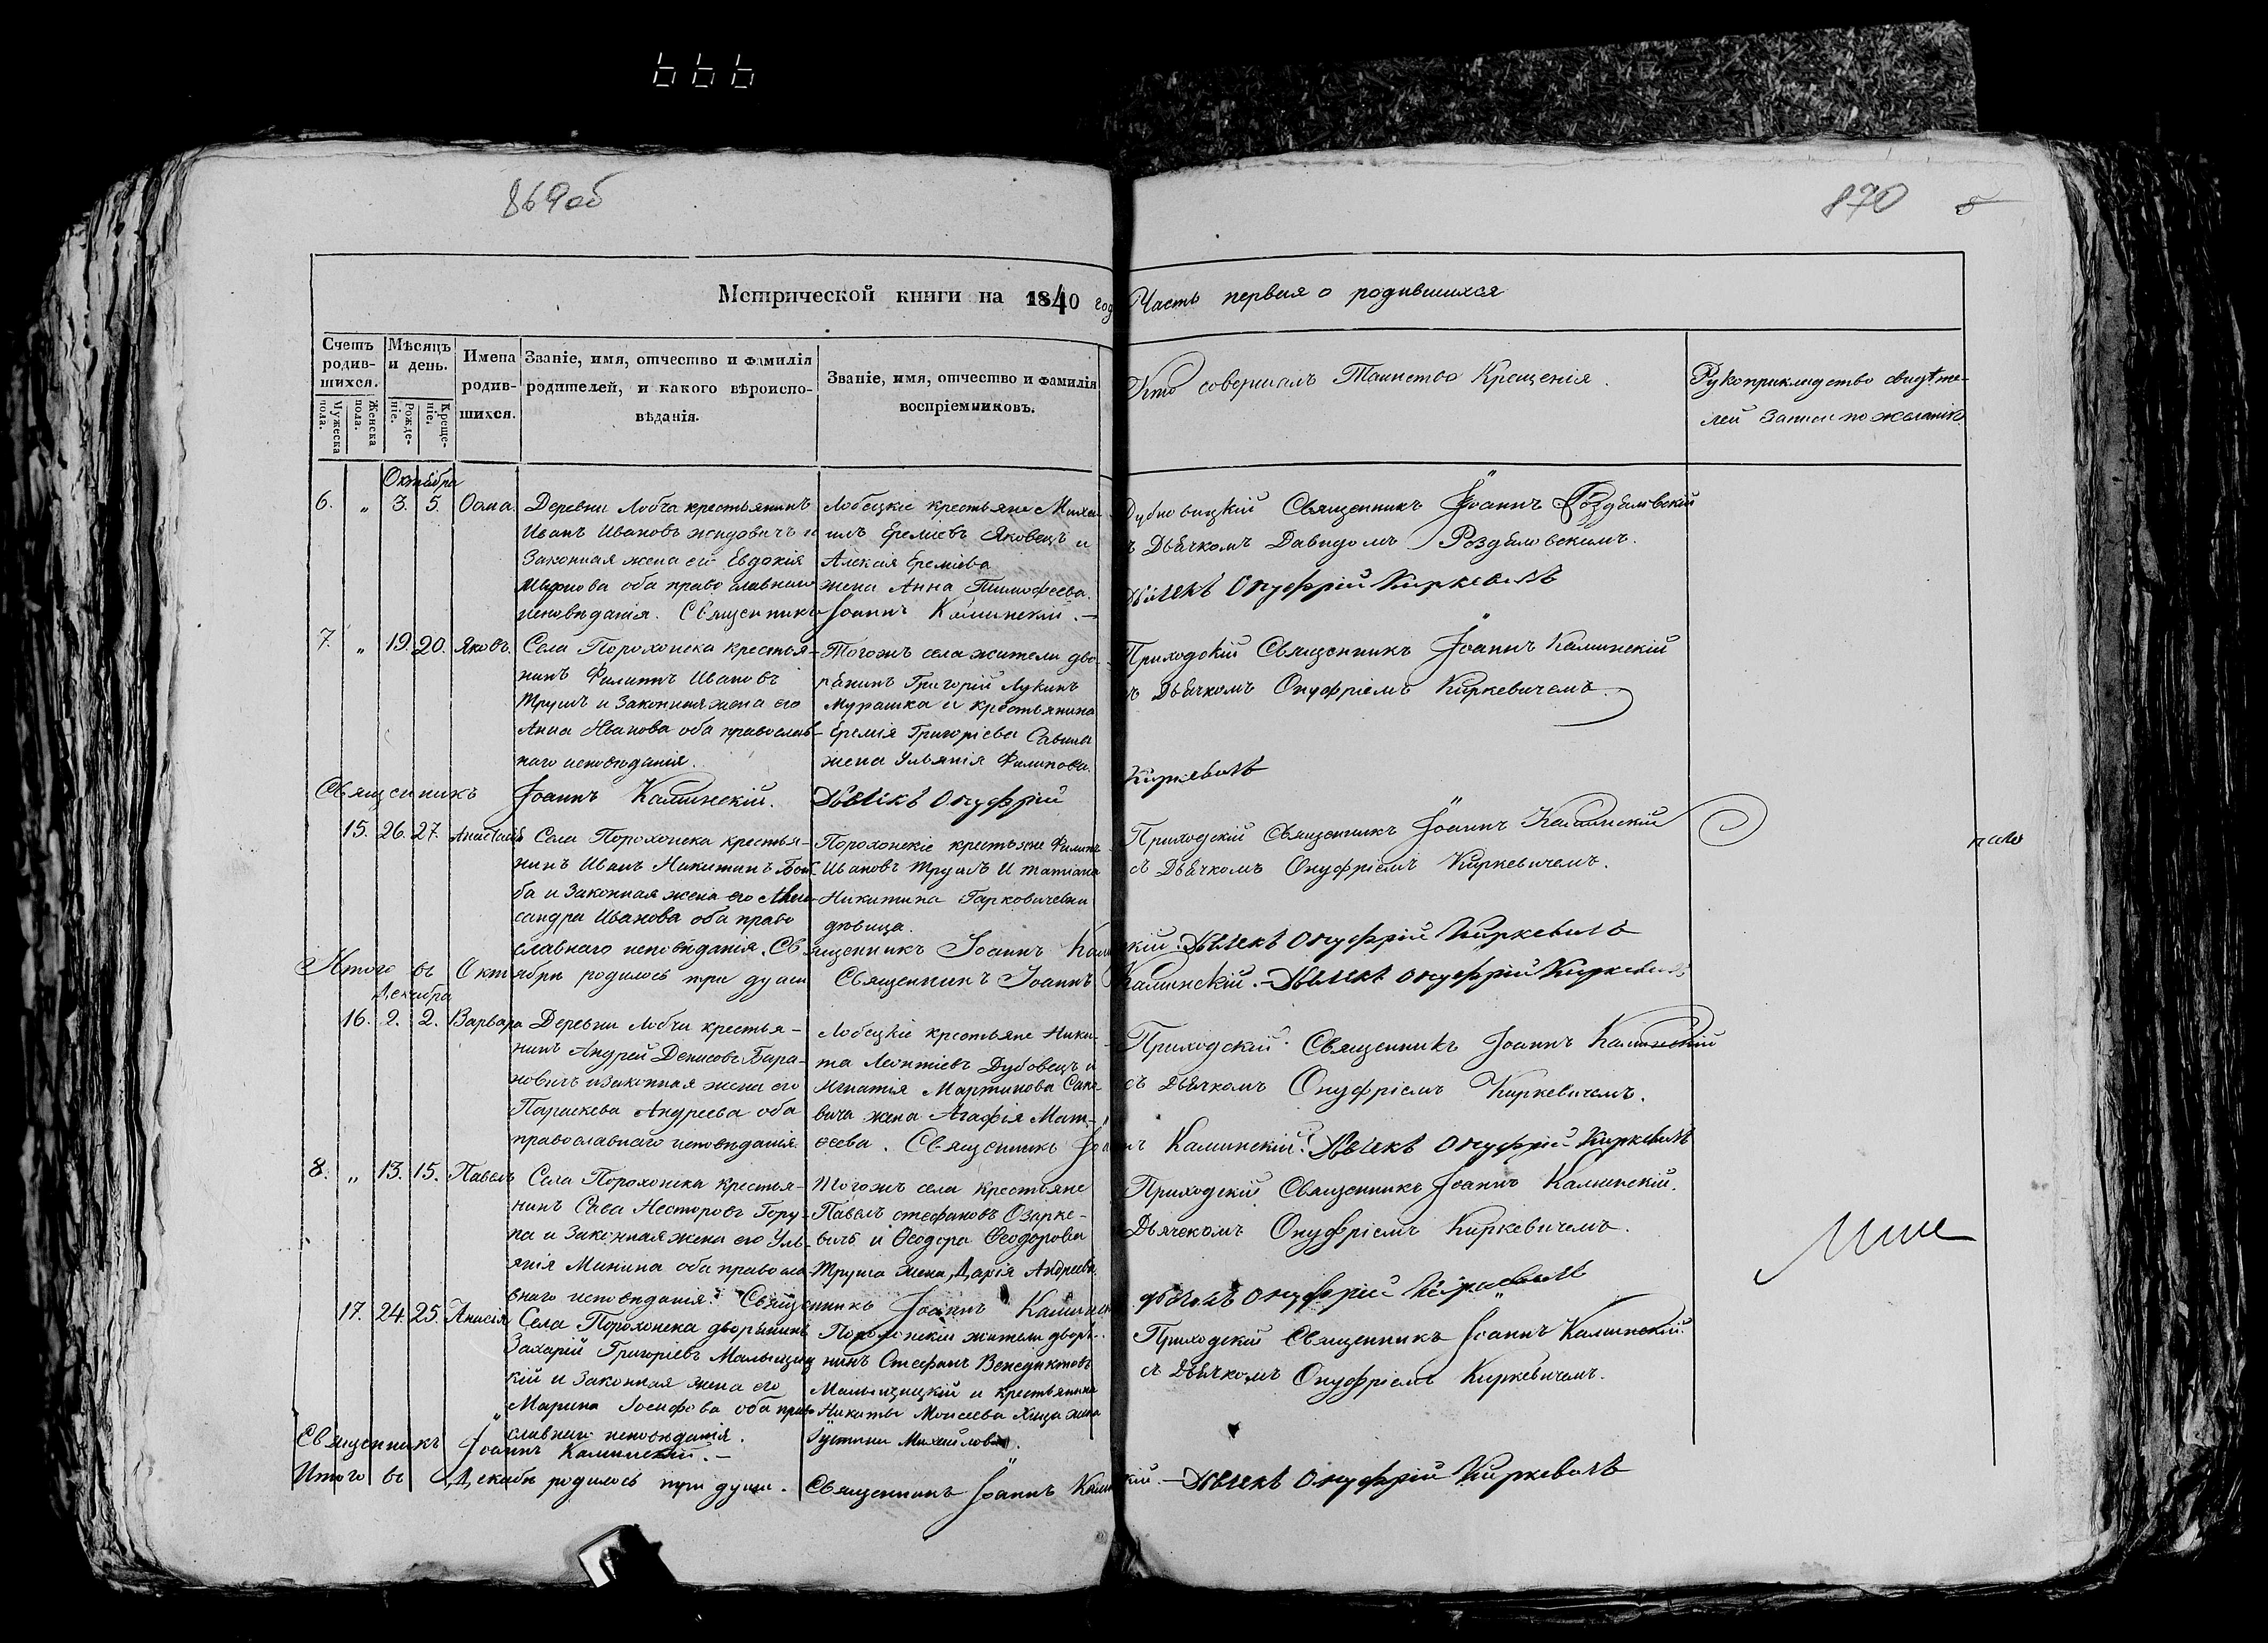 666
869об
870
Метрической книги на 1840 год Часть первая о родившихся
Счетъ родившихся.
Мужеска пола.
Женска пола.
Мѣсяцъ и день.
Рожденіе.
Крещеніе.
Имена родившихся.
Званіе, имя, отчество и фамилія родителей, и какого вѣроисповѣданія.
Званіе, имя, отчество и фамилія воспріемниковъ.
Кто совершалъ Таинство Крещенія.
Рукоприкладство свидѣте-
лей записи по желанію
Октября
6. " 3. 5. Ѳома.
Деревни Лобча крестьянинъ
Иванъ Ивановъ Жидовичъ и
Законная жена его Евдокія
оба православнаго
исповѣданія. Священникъ Іоаннъ Калинскій.
Лобецкіе крестьяне Миха-
илъ Ереміевъ Яковецъ и
Алексія Ереміева
жена Анна Тимофеева.
Дубновицкій Священникъ Іоаннъ Роздяловскій
съ Дьячкомъ Давидомъ Роздяловскимъ.
Дьячекъ Онуфрій Киркевичъ
7. " 19. 20. Яковъ.
Села Порохонска крестья-
нинъ Филиппъ Ивановъ
Трушъ и Законная жена его
Анна Иванова оба православ-
наго исповѣданія.
Тогожъ села жители дво-
рянинъ Григорій Лукинъ
Мурашка и крестьянина
Еремія Григоріева Савича
жена Ульянія Филипова.
Приходскій Священникъ Іоаннъ Калинскій
съ Дьячкомъ Онуфріемъ Киркевичемъ.
Священникъ Іоаннъ Калинскій. Дьячекъ Онуфрій Киркевичъ
15. 26. 27. Анастасія
Села Порохонска крестья-
нинъ Иванъ Никитинъ
ба и Законная жена его Алек-
сандра Иванова оба право
славнаго исповѣданія. Священникъ Іоаннъ Калинскій. Дьячекъ Онуфрій Киркевичъ
Порохонскіе крестьяне Филипъ
Ивановъ Трушъ и Татіана
Никитина Гарковичевни
дѣвица.
Приходскій Священникъ Іоаннъ Калинскій
съ Дьячкомъ Онуфріемъ Киркевичемъ.
Итого въ Октябрѣ родилось три души Священникъ Іоаннъ Калинскій. Дьячекъ Онуфрій Киркевичъ
Декабря
16. 2. 2. Варвара
Деревни Лобчи крестья-
нинъ Андрей Денисовъ Бара-
новичъ и законная жена его
Параскева Андреева оба
православнаго исповѣданія.
Лобецкіе крестьяне Ники-
та Леонтіевъ Дубовецъ и
Игнатія Мартинова Сапе-
вича жена Агафія Мат-
ѳеева. Священникъ Іоаннъ Калинскій. Дьячекъ Онуфрій Киркевичъ
Приходскій Священникъ Іоаннъ Калинскій
съ Дьячкомъ Онуфріемъ Киркевичемъ.
8. " 13. 15. Павелъ
Села Порохонска крестья-
нинъ Сава Несторовъ Гору-
па и Законная жена его Уль-
янія Минина оба правосла-
внаго исповѣданія. Священникъ Іоаннъ Калинскій
Тогожъ села крестьяне
Павелъ Стефановъ Озарке-
вичъ и Ѳеодора Ѳеодорова
Труша жена Дарія Андреева.
Приходскій Священникъ Іоаннъ Калинскій.
Дьячекомъ Онуфріемъ Киркевичемъ.
Дьячекъ Онуфрій Киркевичъ
17. 24. 25. Анисія
Села Порохонска дворянинъ
Захарій Григоріевъ Малыщиц
кій и Законная жена его
Марина Іосифова оба право
славнаго исповѣданія.
Порохонскіи жители дворя-
нинъ Стефанъ Венедиктовъ
Малыщицкій и крестьянина
Никиты Моисеева Хвща жена
Іустина Михайлова.
Приходскій Священникъ Іоаннъ Калинскій.
съ Дьячкомъ Онуфріемъ Киркевичемъ.
Священникъ Іоаннъ Калинскій.
Итого въ Декабрѣ родилось три души. Священникъ Іоаннъ Калинскій. Дьячекъ Онуфрій Киркевичъ